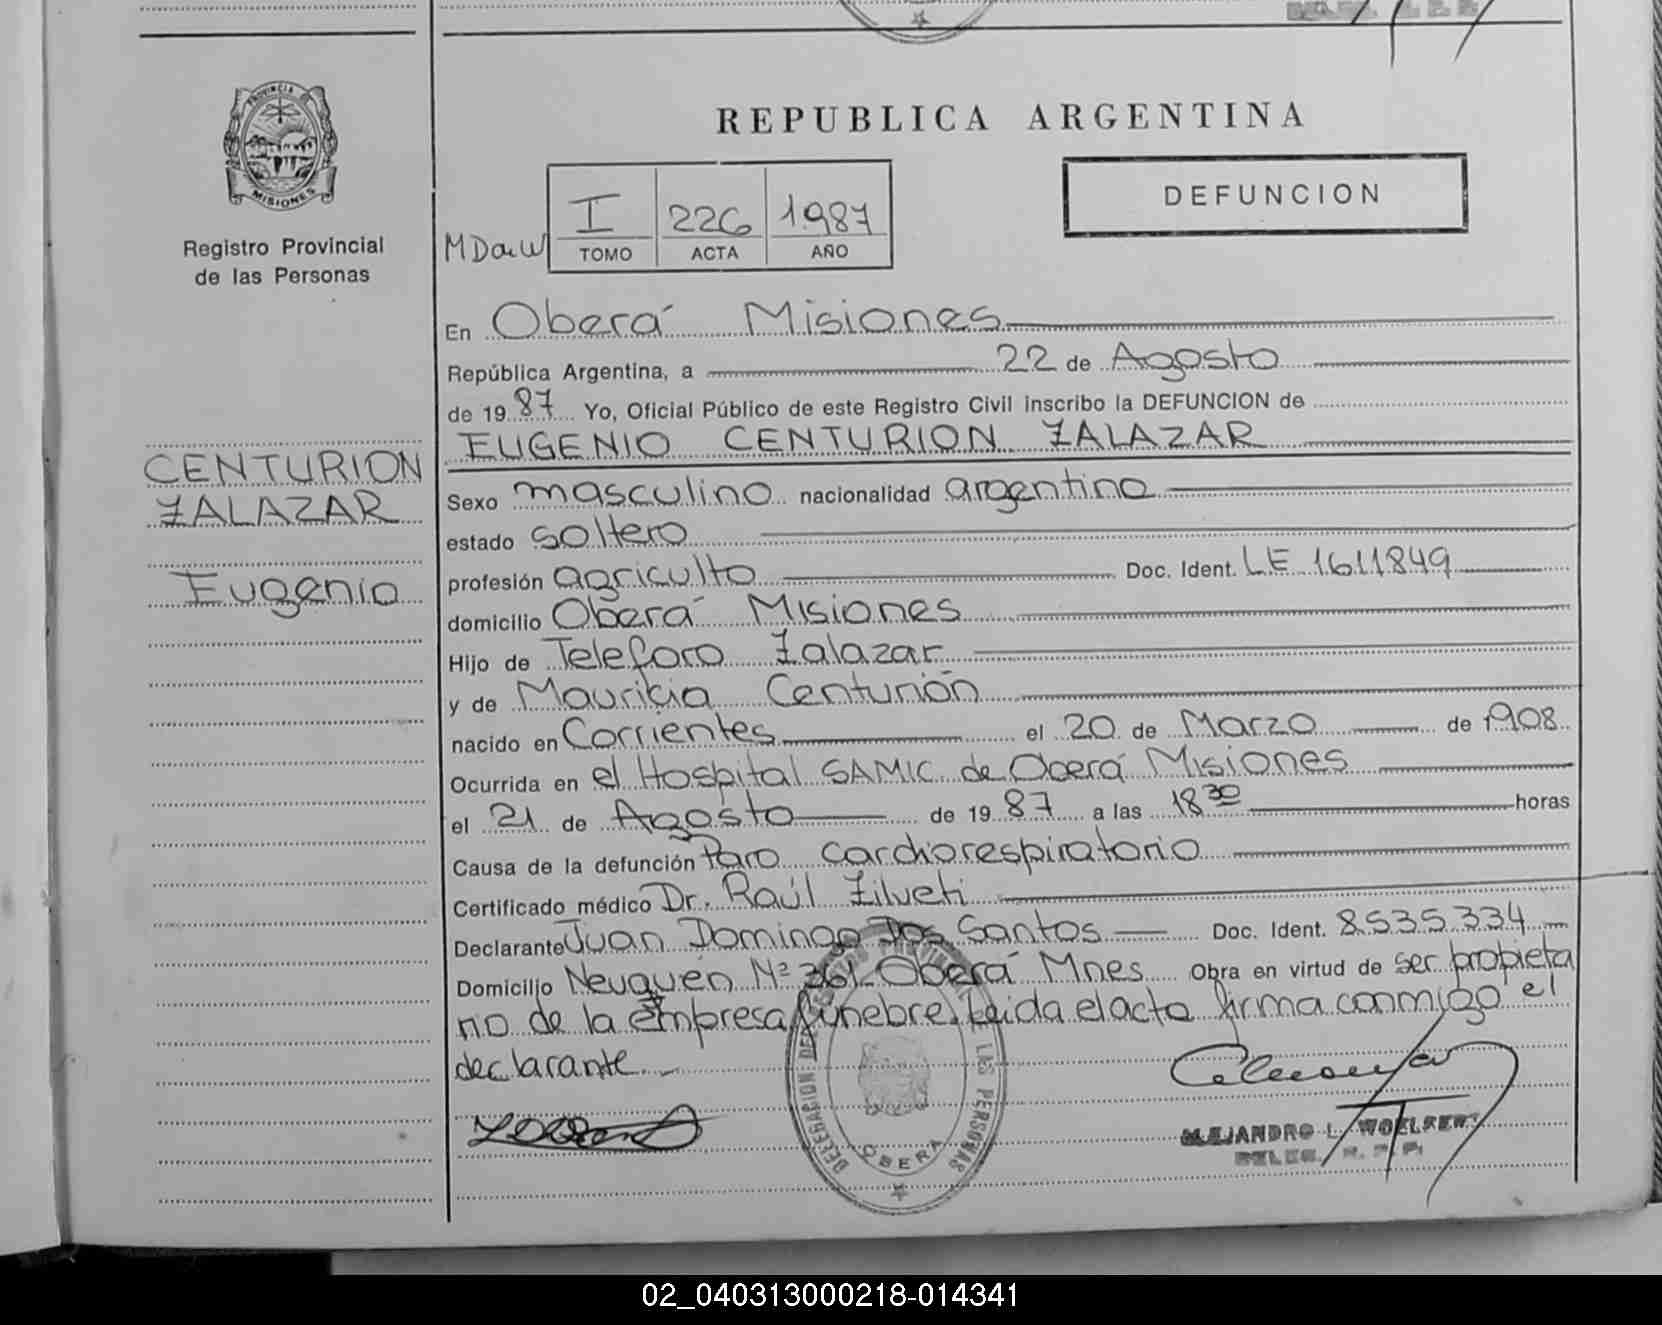 PROVINCIA
MISIONES
Registro Provincial
de las Personas
REPUBLICA ARGENTINA
DEFUNCION
I 226 1.987
TOMO ACTA AÑO
En Oberá Misiones
República Argentina, a 22 de Agosto
de 19 87 Yo, Oficial Público de este Registro Civil inscribo la DEFUNCION de
EUGENIO CENTURION ZALAZAR
CENTURION
ZALAZAR
Eugenio
Sexo masculino nacionalidad argentino
estado soltero
profesión agriculto Doc. Ident. LE 1.611.849
domicilio Oberá Misiones
Hijo de Teleforo Zalazar
y de Mauricia Centurión
nacido en Corrientes el 20 de Marzo de 1908
Ocurrida en el Hospital SAMIC de Oberá Misiones
el 21 de Agosto de 19 87 a las 18 30 horas
Causa de la defunción Paro cardiorespiratorio
Certificado médico Dr. Raúl Zilveti
Declarante Juan Domingo Dos Santos Doc. Ident. 8.535.334
Domicilio Neuquén Nº 361 Oberá Mnes Obra en virtud de ser propieta
rio de la empresa fúnebre. Leida el acto firma conmigo el
declarante
DELEGACION DEL REGISTRO PROVINCIAL DE LAS PERSONAS
OBERA
ALEJANDRO L. WOELFERT
DELEG. R. P. P.
02_040313000218-014341